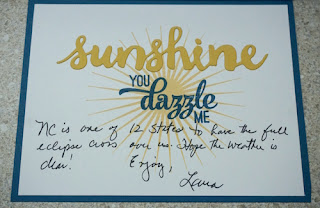 sunshine
YOU
dazzle
ME
NC is one of 12 States to have the full
eclipse cross over us. Hope the weather is
clear!
Enjoy,
Lena